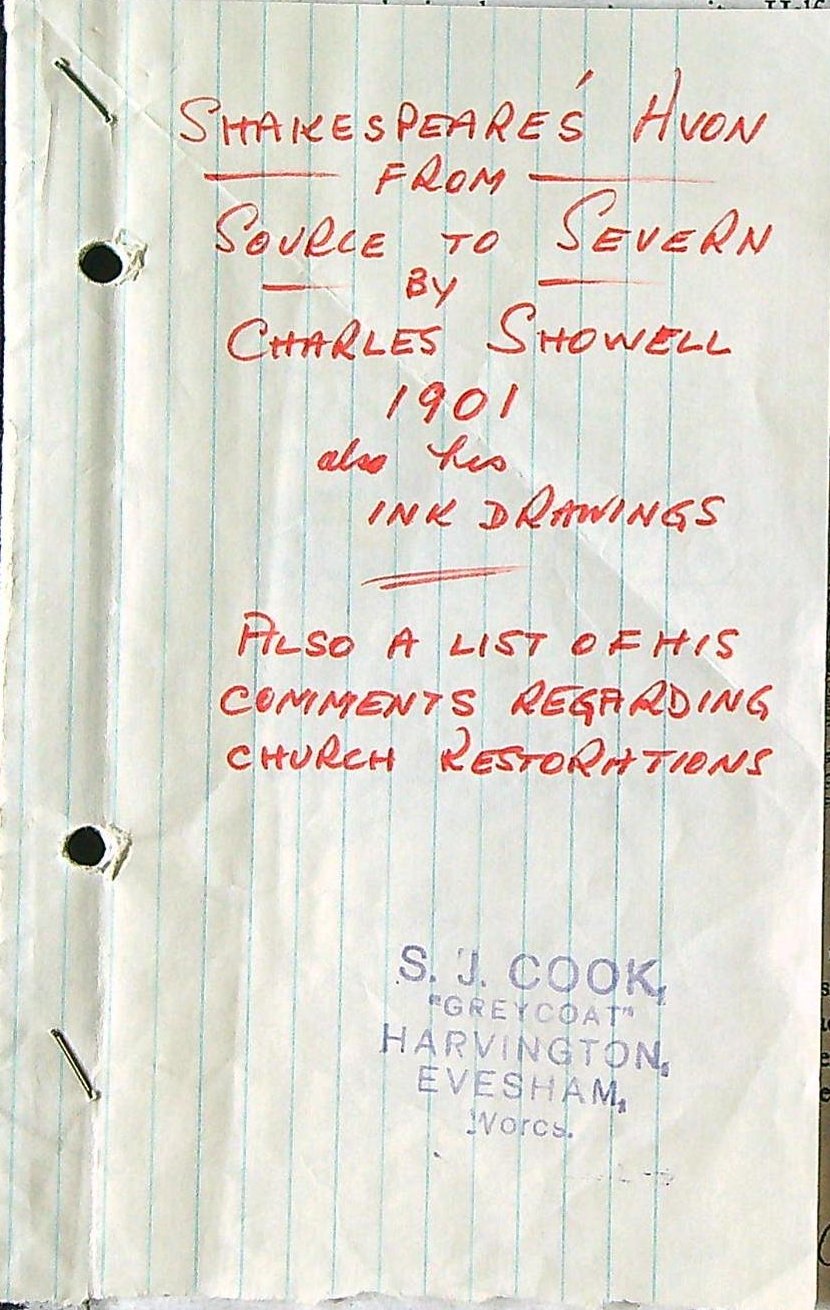 SHAKESPEARE'S AVON
FROM
SOURCE TO SEVERN
BY
CHARLES SHOWELL
1901
also his
INK DRAWINGS
ALSO A LIST OF HIS
COMMENTS REGARDING
CHURCH RESTORATIONS
S. J. COOK,
"GREYCOAT"
HARVINGTON,
EVESHAM,
Worcs.